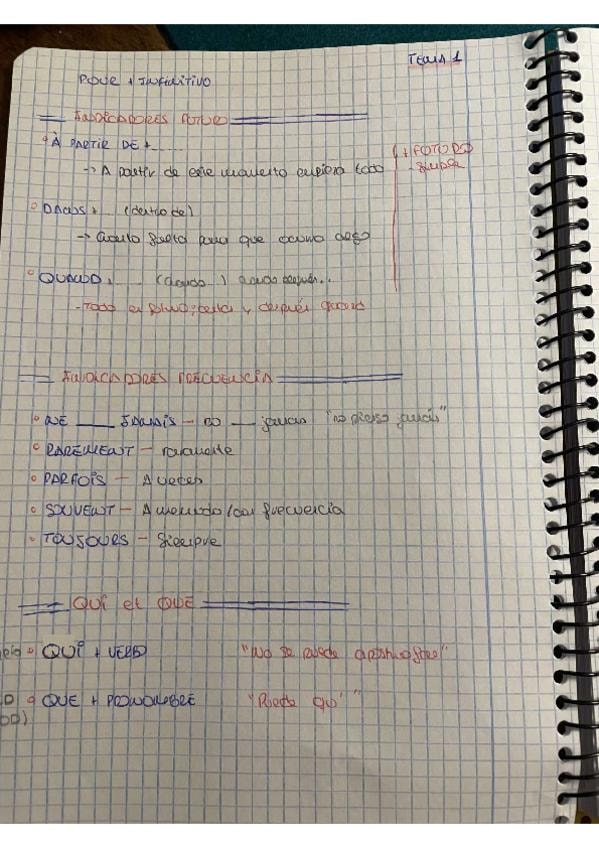 TEMA 1
POUR + INFINITIVO
INDICADORES FUTURO
À PARTIR DE + .....
→ A partir de este momento empieza todo
+ FUTURO
simple
DANS + ... (dentro de)
→ cuanto falta para que ocurra algo
QUAND + .... (cuando ...)
- Todo en futuro: y después
INDICADORES FRECUENCIA
NE ____ JAMAIS - no __ jamás "no pienso jamás"
RAREMENT - raramente
PARFOIS - A veces
SOUVENT - A menudo / con frecuencia
TOUJOURS - Siempre
QUI et QUE
QUI + VERBO "No se puede apostrofar"
QUE + PRONOMBRE "Puede qu' "